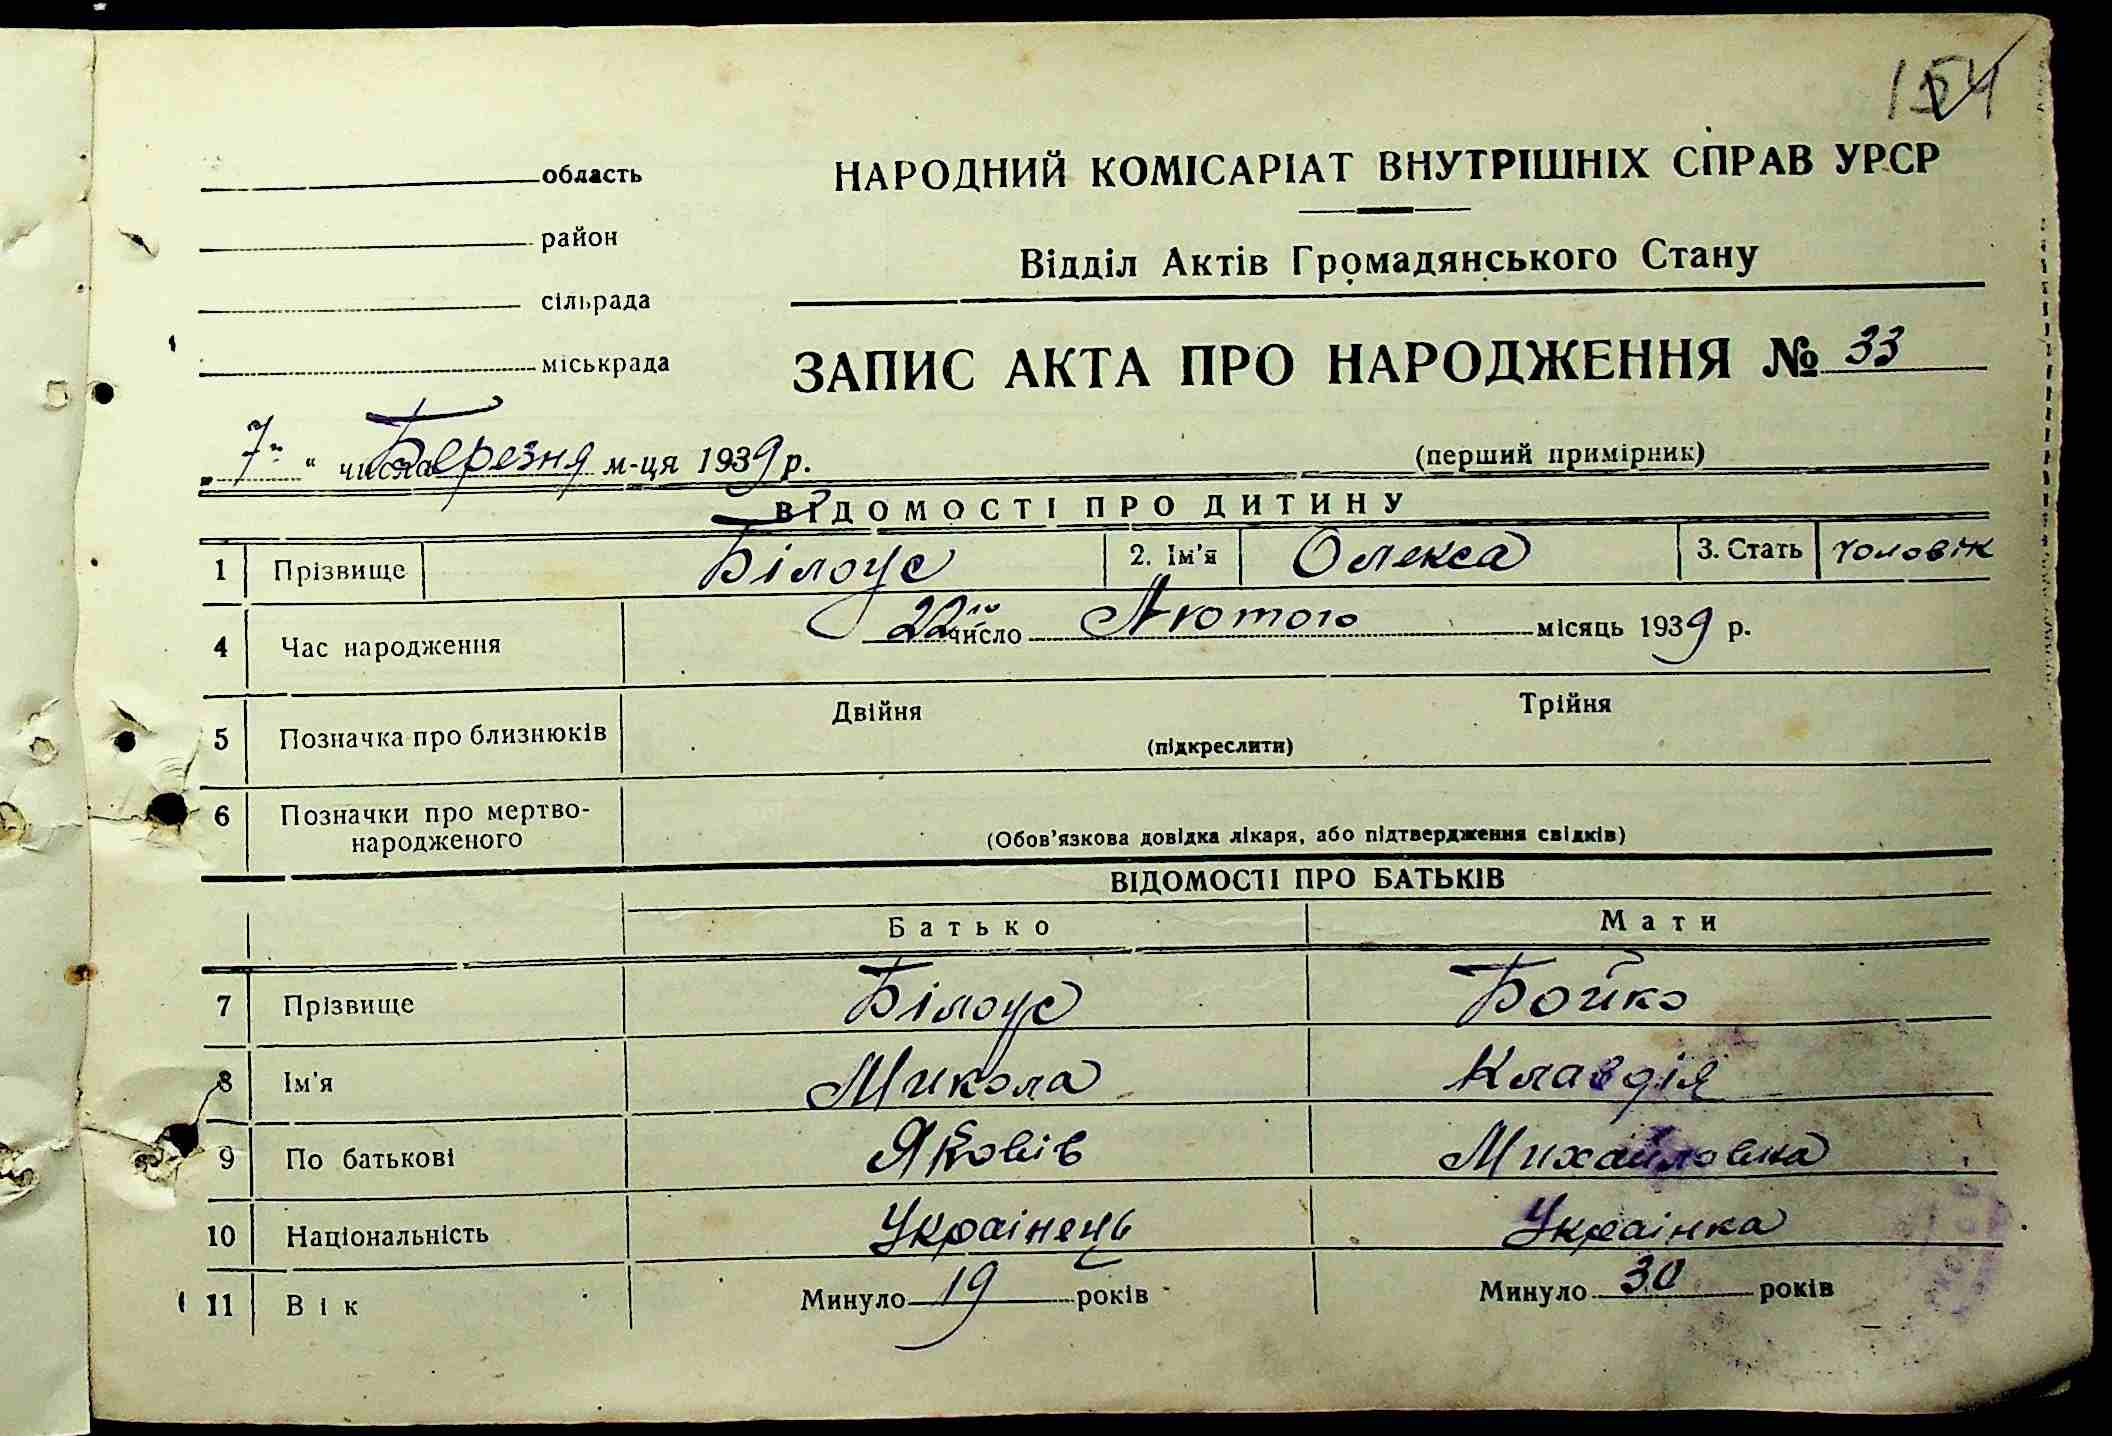 154
область
район
сільрада
міськрада
НАРОДНИЙ КОМІСАРІАТ ВНУТРІШНІХ СПРАВ УРСР
Відділ Актів Громадянського Стану
ЗАПИС АКТА ПРО НАРОДЖЕННЯ № 33
„7го“ числа Березня м-ця 1939 р. (перший примірник)
ВІДОМОСТІ ПРО ДИТИНУ
1 Прізвище Білоус 2. Ім'я Олекса 3. Стать чоловік
4 Час народження 22го число Лютого місяць 1939 р.
5 Позначка про близнюків Двійня Трійня
(підкреслити)
6 Позначки про мертво-
народженого
(Обов'язкова довідка лікаря, або підтвердження свідків)
ВІДОМОСТІ ПРО БАТЬКІВ
Батько Мати
7 Прізвище Білоус Бойко
8 Ім'я Микола Клавдія
9 По батькові Яковів Михайловна
10 Національність Українець Українка
11 Вік Минуло 19 років Минуло 30 років